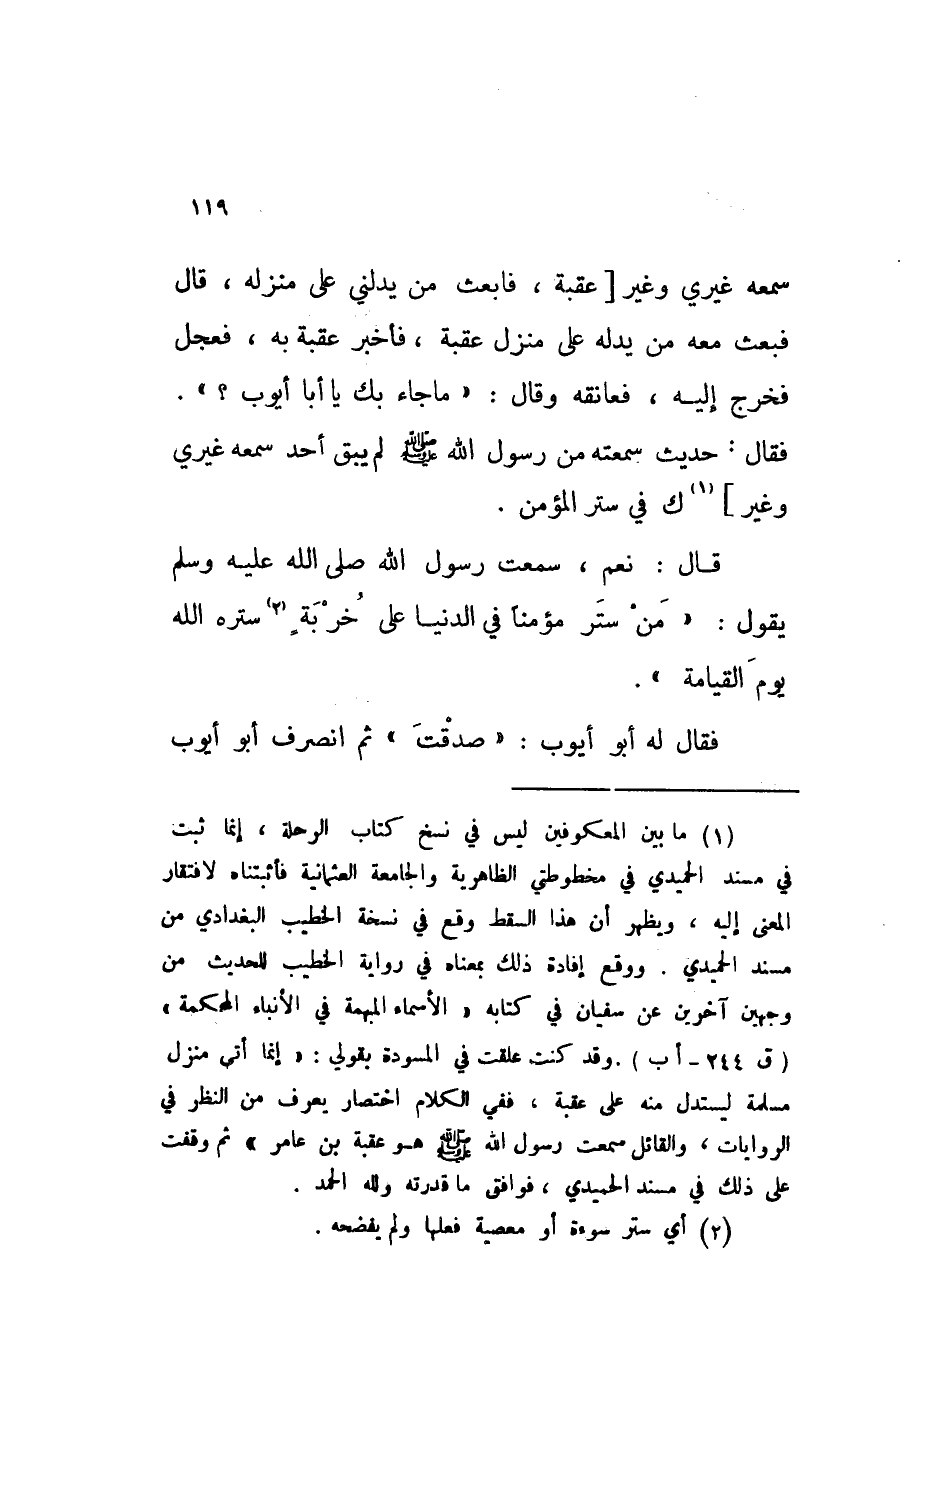 ١١٩
سمعه غيري وغير [ عقبة ، فابعث من يدلني على منزله ، قال
فبعث معه من يدله على منزل عقبة ، فأخبر عقبة به ، فعجل
فخرج إليه ، فعانقه وقال : « ماجاء بك يا أبا أيوب ؟ » .
فقال : حديث سمعته من رسول الله ﷺ لم يبق أحد سمعه غيري
وغير ] (١) ك في ستر المؤمن .
قال : نعم ، سمعت رسول الله صلى الله عليه وسلم
يقول : « مَنْ ستَر مؤمناً في الدنيا على خُرْبَةٍ (٢) ستره الله
يومَ القيامة » .
فقال له أبو أيوب : « صدقْتَ » ثم انصرف أبو أيوب
(١) ما بين المعكوفين ليس في نسخ كتاب الرحلة ، إنما ثبت
في مسند الحميدي في مخطوطتي الظاهرية والجامعة العثمانية فأثبتناه لافتقار
المعنى إليه ، ويظهر أن هذا السقط وقع في نسخة الخطيب البغدادي من
مسند الحميدي . ووقع إفادة ذلك بمعناه في رواية الخطيب للحديث من
وجهين آخرين عن سفيان في كتابه « الأسماء المبهمة في الأنباء المحكمة »
( ق ٢٤٤ - أ ب ) . وقد كنت علقت في المسودة بقولي : « إنما أتى منزل
مسلمة ليستدل منه على عقبة ، ففي الكلام اختصار يعرف من النظر في
الروايات ، والقائل سمعت رسول الله ﷺ هو عقبة بن عامر » ثم وقفت
على ذلك في مسند الحميدي ، فوافق ما قدرته ولله الحمد .
(٢) أي ستر سوءة أو معصية فعلها ولم يفضحه .